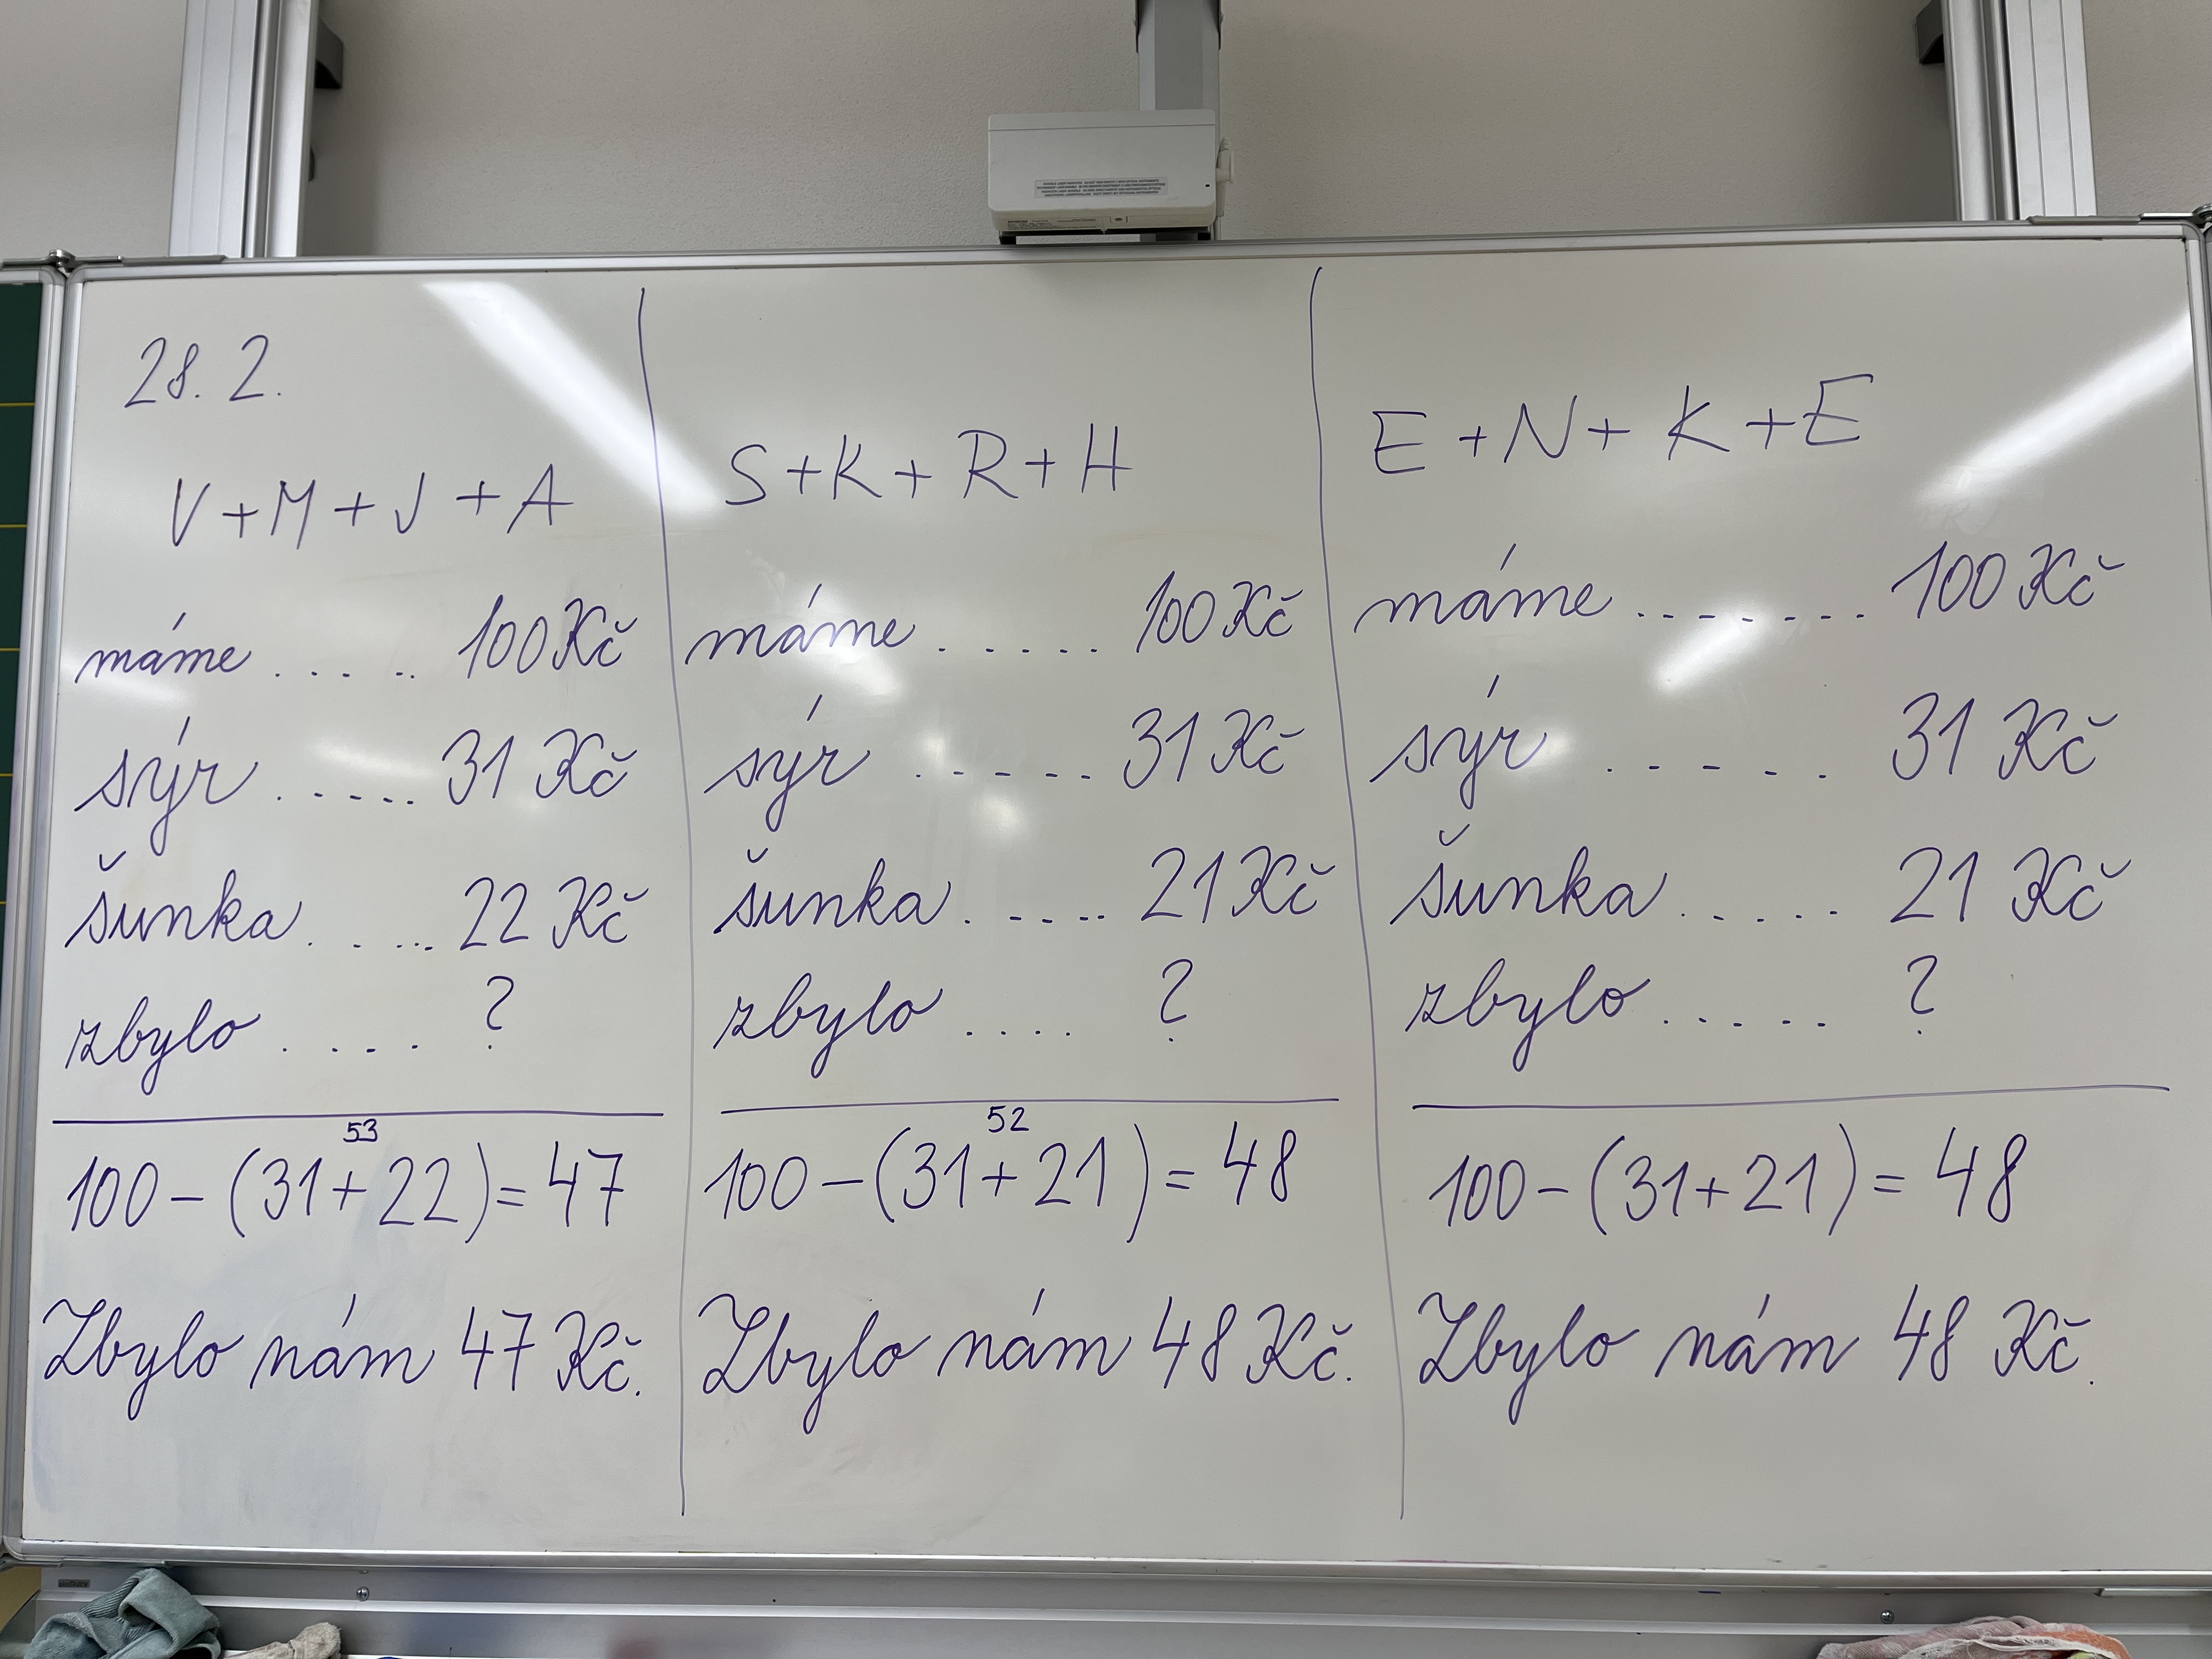 28. 2.
V + M + J + A
máme ..... 100 Kč
sýr ..... 31 Kč
šunka ..... 22 Kč
zbylo .... ?
53
100 - (31 + 22) = 47
Zbylo nám 47 Kč.
S + K + R + H
máme ..... 100 Kč
sýr ..... 31 Kč
šunka ..... 21 Kč
zbylo .... ?
52
100 - (31 + 21) = 48
Zbylo nám 48 Kč.
E + N + K + E
máme ....... 100 Kč
sýr ..... 31 Kč
šunka ..... 21 Kč
zbylo ..... ?
100 - (31 + 21) = 48
Zbylo nám 48 Kč.